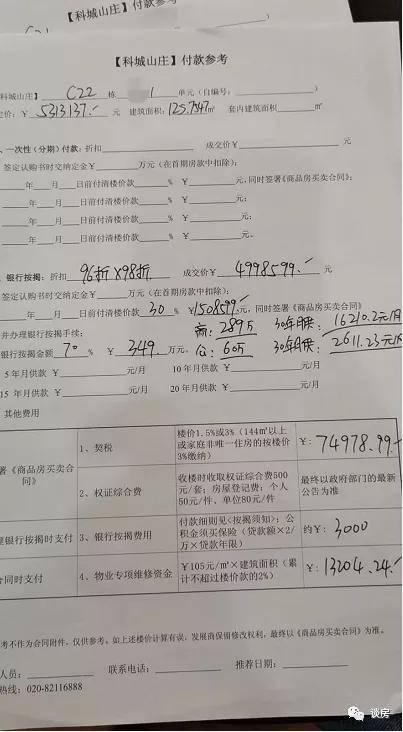 【科城山庄】付款
【科城山庄】付款参考
科城山庄】 C22 栋 1 单元（自编号: ）
定价: ￥5313137.- 元 建筑面积: 125.7547㎡ 套内建筑面积 ㎡
、一次性（分期）付款: 折扣 成交价￥ 元
签定认购书时交纳定金￥ 万元（在首期房款中扣除）:
年 月 日前付清楼价款 % ￥ 元,同时签署《商品房买卖合同》:
年 月 日前付清楼价款 % ￥ 元;
年 月 日前付清楼价款 % ￥ 元;
年 月 日前付清楼价款 % ￥ 元。
、银行按揭: 折扣 96折×98折 成交价￥ 4998599.- 元
签定认购书时交纳定金￥ 万元（在首期房款中扣除）:
年 月 日前付清楼价款 30 % ￥1508599.-元,同时签署《商品房买卖合同》
并办理银行按揭手续: 商: 289万 30年月供: 16210.2元/月
银行按揭金额 70 % ￥ 349 万元。 公: 60万 30年月供: 2611.23元/月
5 年月供款 ￥ 元/月 10 年月供款 ￥ 元/月
15 年月供款 ￥ 元/月 20 年月供款 ￥ 元/月
其他费用
署《商品房买卖合同》
1、契税
楼价1.5%或3%（144㎡以上或家庭非唯一住房的按楼价3%缴纳）
￥: 74978.99.-
2、权证综合费
收楼时收取权证综合费500元/套; 房屋登记费: 个人50元/件、单位80元/件
最终以政府部门的最新公告为准
理银行按揭时支付
3、银行按揭费用
付款细则见<按揭须知>; 公积金须买保险（贷款额×2/万×贷款年限）
约￥: 3000
合同时支付
4、物业专项维修资金
￥105元/㎡×建筑面积（累计不超过楼价款的2%）
￥: 13204.24.-
考不作为合同附件，仅供参考。如上述楼价计算有误，发展商保留修改权利，最终以《商品房买卖合同》为准。
人员: 联系电话: 推荐日期:
热线: 020-82116888
谈房